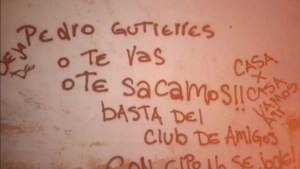 PEDRO GUTIERRES
O TE VAS
O TE SACAMOS!!
BASTA DEL
CLUB DE AMIGOS
CON
SE
DEJA
DE
CASA
X
CASA
VAMOS